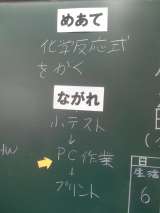 めあて
化学反応式
をかく
ながれ
小テスト
↓
PC作業
↓
プリント
HW
日
生活
6